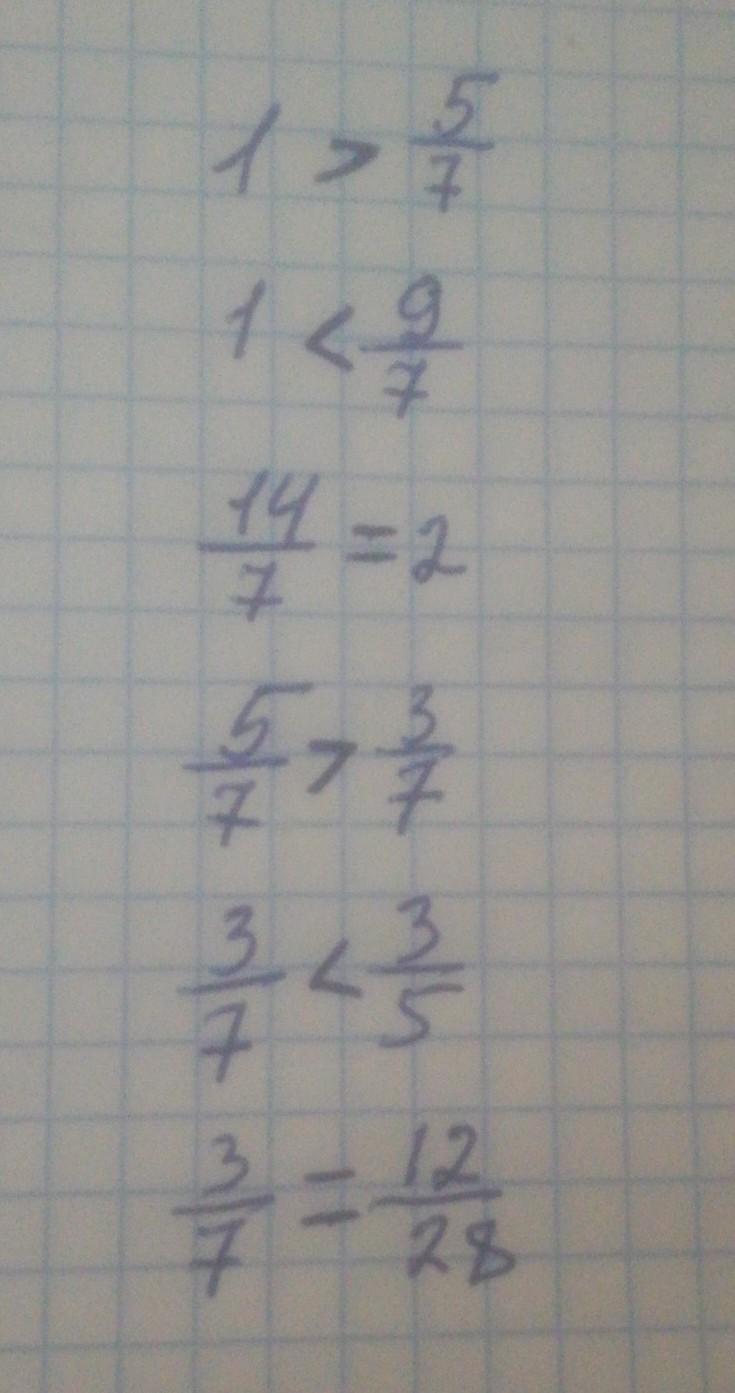 1 > 5/7
1 < 9/7
14/7 = 2
5/7 > 3/7
3/7 < 3/5
3/7 = 12/28